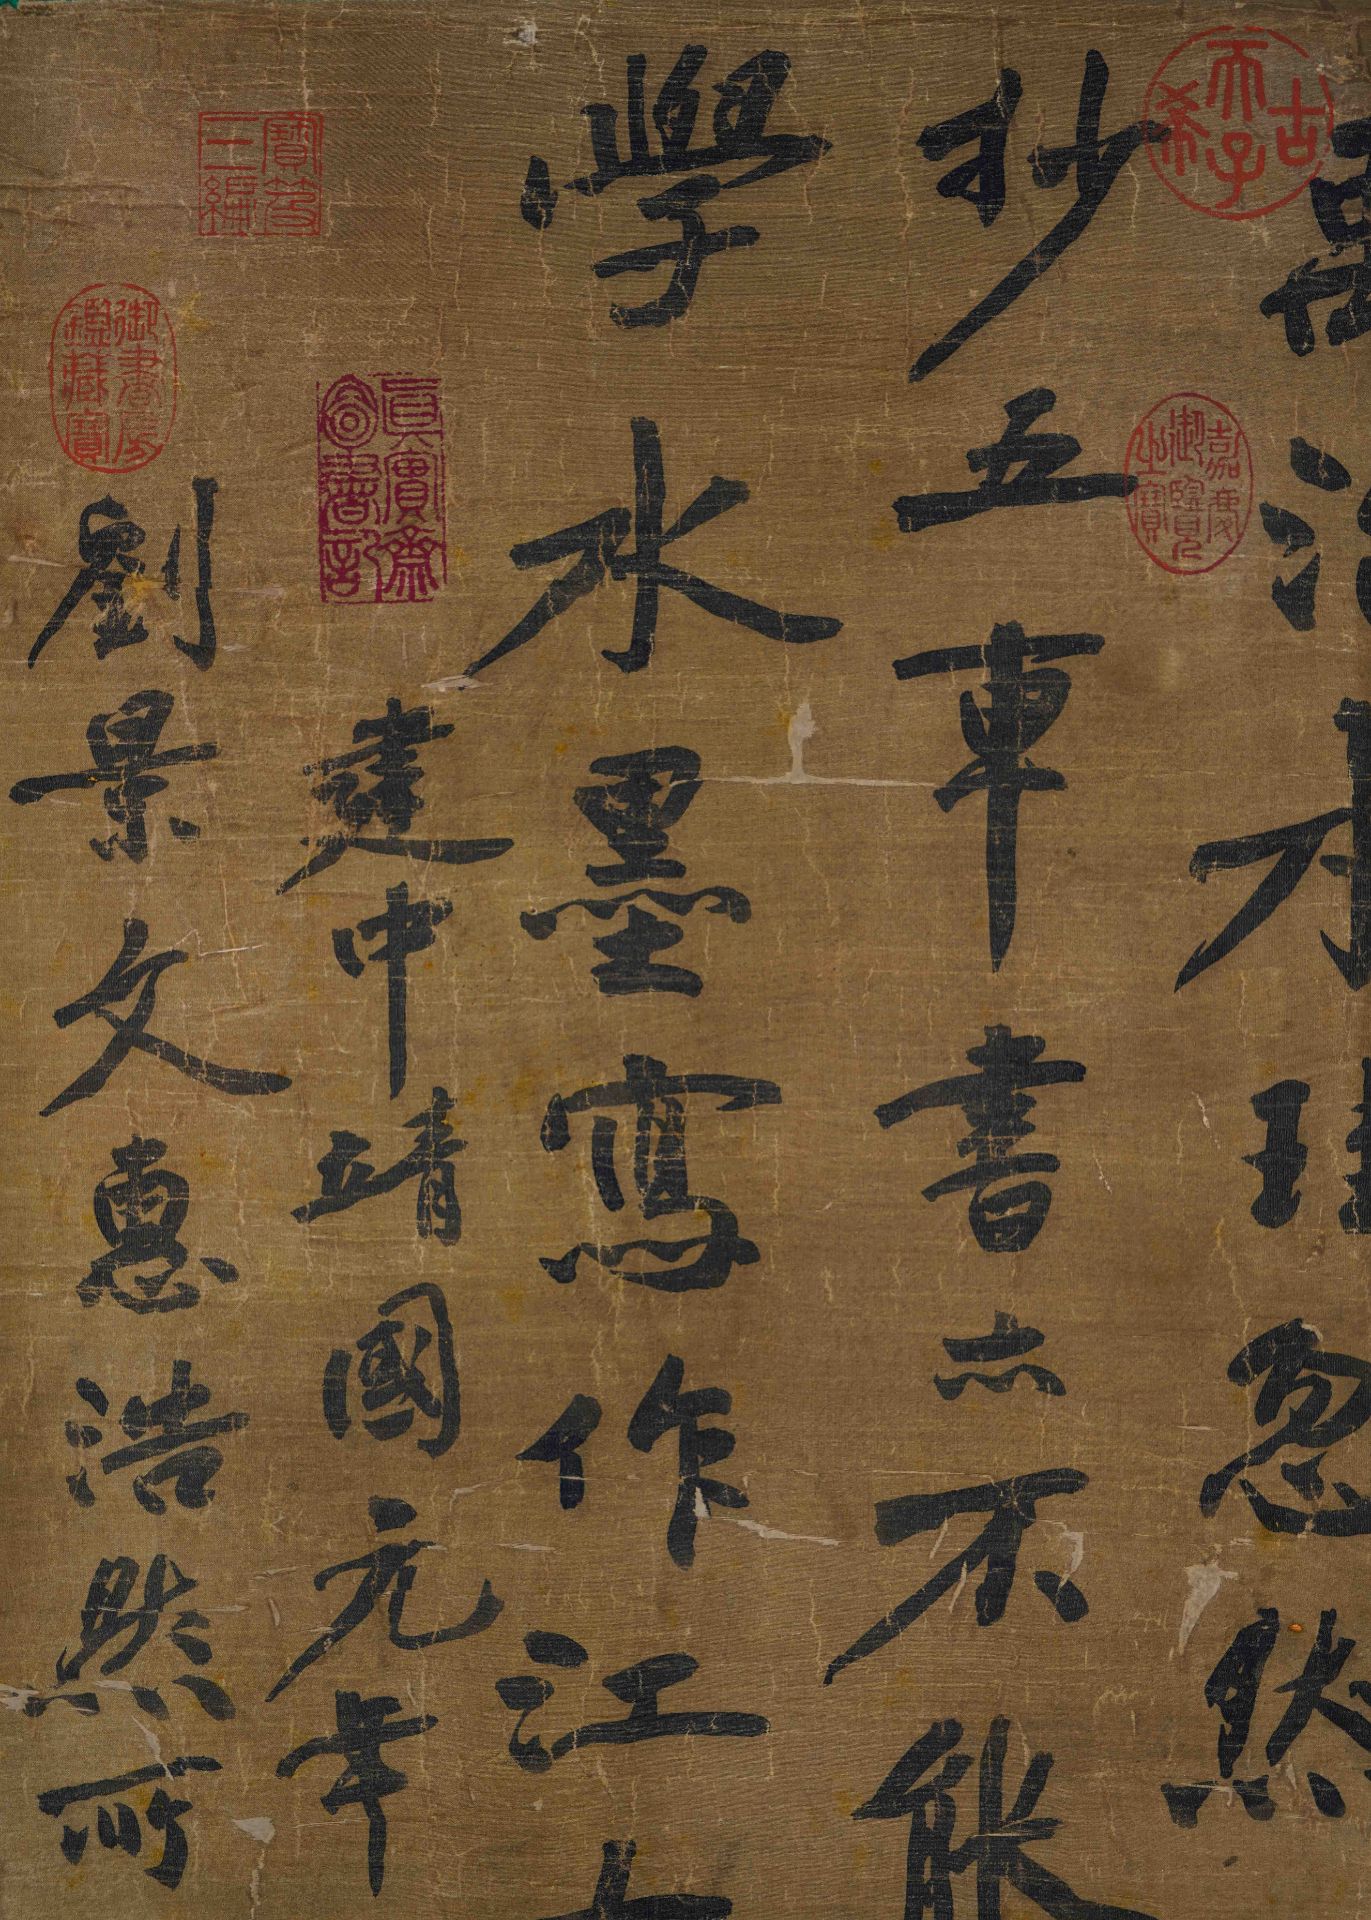 古希天子
嘉慶御覽之寶
忽然
抄五車書亦不能
學水墨寫作江
建中靖國元年
寶笈三編
御書房鑑藏寶
劉景文惠浩然所